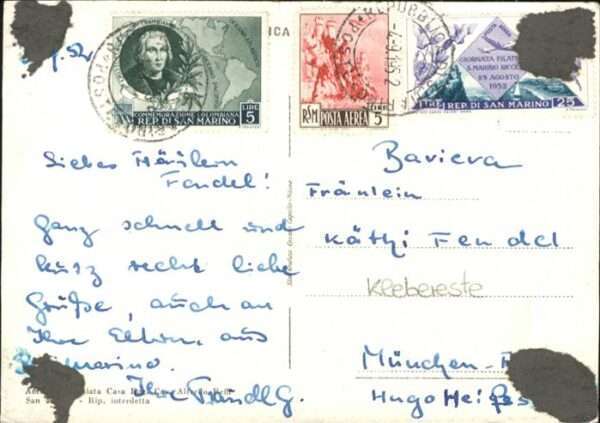 COMMEMORAZIONE COLOMBIANA
REP. DI SAN MARINO
LIRE 5
RSM POSTA AEREA LIRE 5
GIORNATA FILATELICA
S. MARINO RICCIONE
25 AGOSTO
1952
LIRE REP. DI SAN MARINO 25
Liebes Fräulein
Fendel!
Ganz schnell und
kurz recht liebe
Grüße, auch an
Ihre Eltern, aus
marino.
Ihr
Baviera
Fräulein
Käthi Fendel
Klebereste
München-
Hugo
San - Rip. interdetta